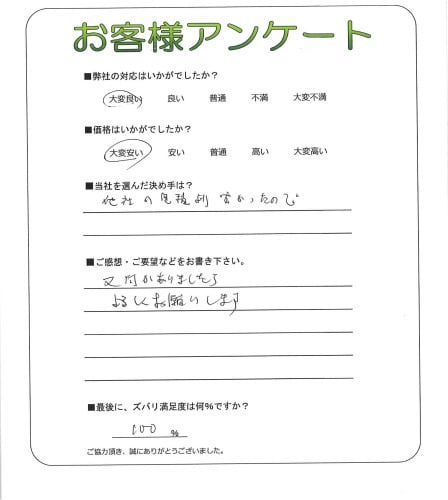 お客様アンケート
■弊社の対応はいかがでしたか？
大変良い 良い 普通 不満 大変不満
■価格はいかがでしたか？
大変安い 安い 普通 高い 大変高い
■当社を選んだ決め手は？
他社の見積より安かったので
■ご感想・ご要望などをお書き下さい。
又何かありましたら
よろしくお願いします
■最後に、ズバリ満足度は何％ですか？
100 ％
ご協力頂き、誠にありがとうございました。